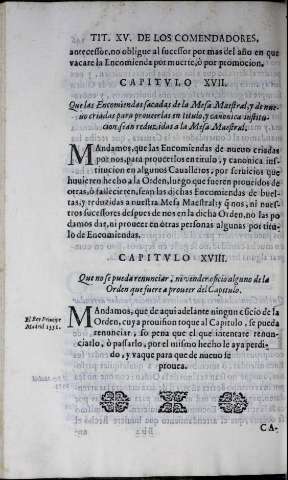 TIT. XV. DE LOS COMENDADORES,
antecessor, no obligue al sucessor por mas del año en que
vacare la Encomienda por muerte, ò por promocion.
CAPITVLO XVII.
Que las Encomiendas sacadas de la Mesa Maestral, y de nue-
uo criadas para proueerlas en titulo, y canonica institu-
cion, sean reduzidas a la Mesa Maestral.
MAndamos, que las Encomiendas de nueuo criadas
por nos, para proueerlos en titulo, y canonica ins-
titucion en algunos Caualleros, por seruicios que
huuieren hecho a la Orden, luego que fueren proueidos de
otras, ò fallecieren, sean las dichas Encomiendas de buel-
tas, y reduzidas a nuestra Mesa Maestral: y q̃ nos, ni nues-
tros successores despues de nos en la dicha Orden, no las po-
damos dar, ni proueer en otras personas algunas por titu-
lo de Encomiendas.
CAPITVLO XVIII.
Que no se pueda renunciar, ni vender oficio alguno de la
Orden que fuere a proueer del Capitulo.
El Rey Principe
Madrid 1552.
MAndamos, que de aqui adelante ningun oficio de la
Orden, cuya prouision toque al Capitulo, se pueda
renunciar, so pena que el que intentare renun-
ciarlo, ò passarlo, por el mismo hecho le aya perdi-
do, y vaque para que de nueuo se
prouea.
CA-